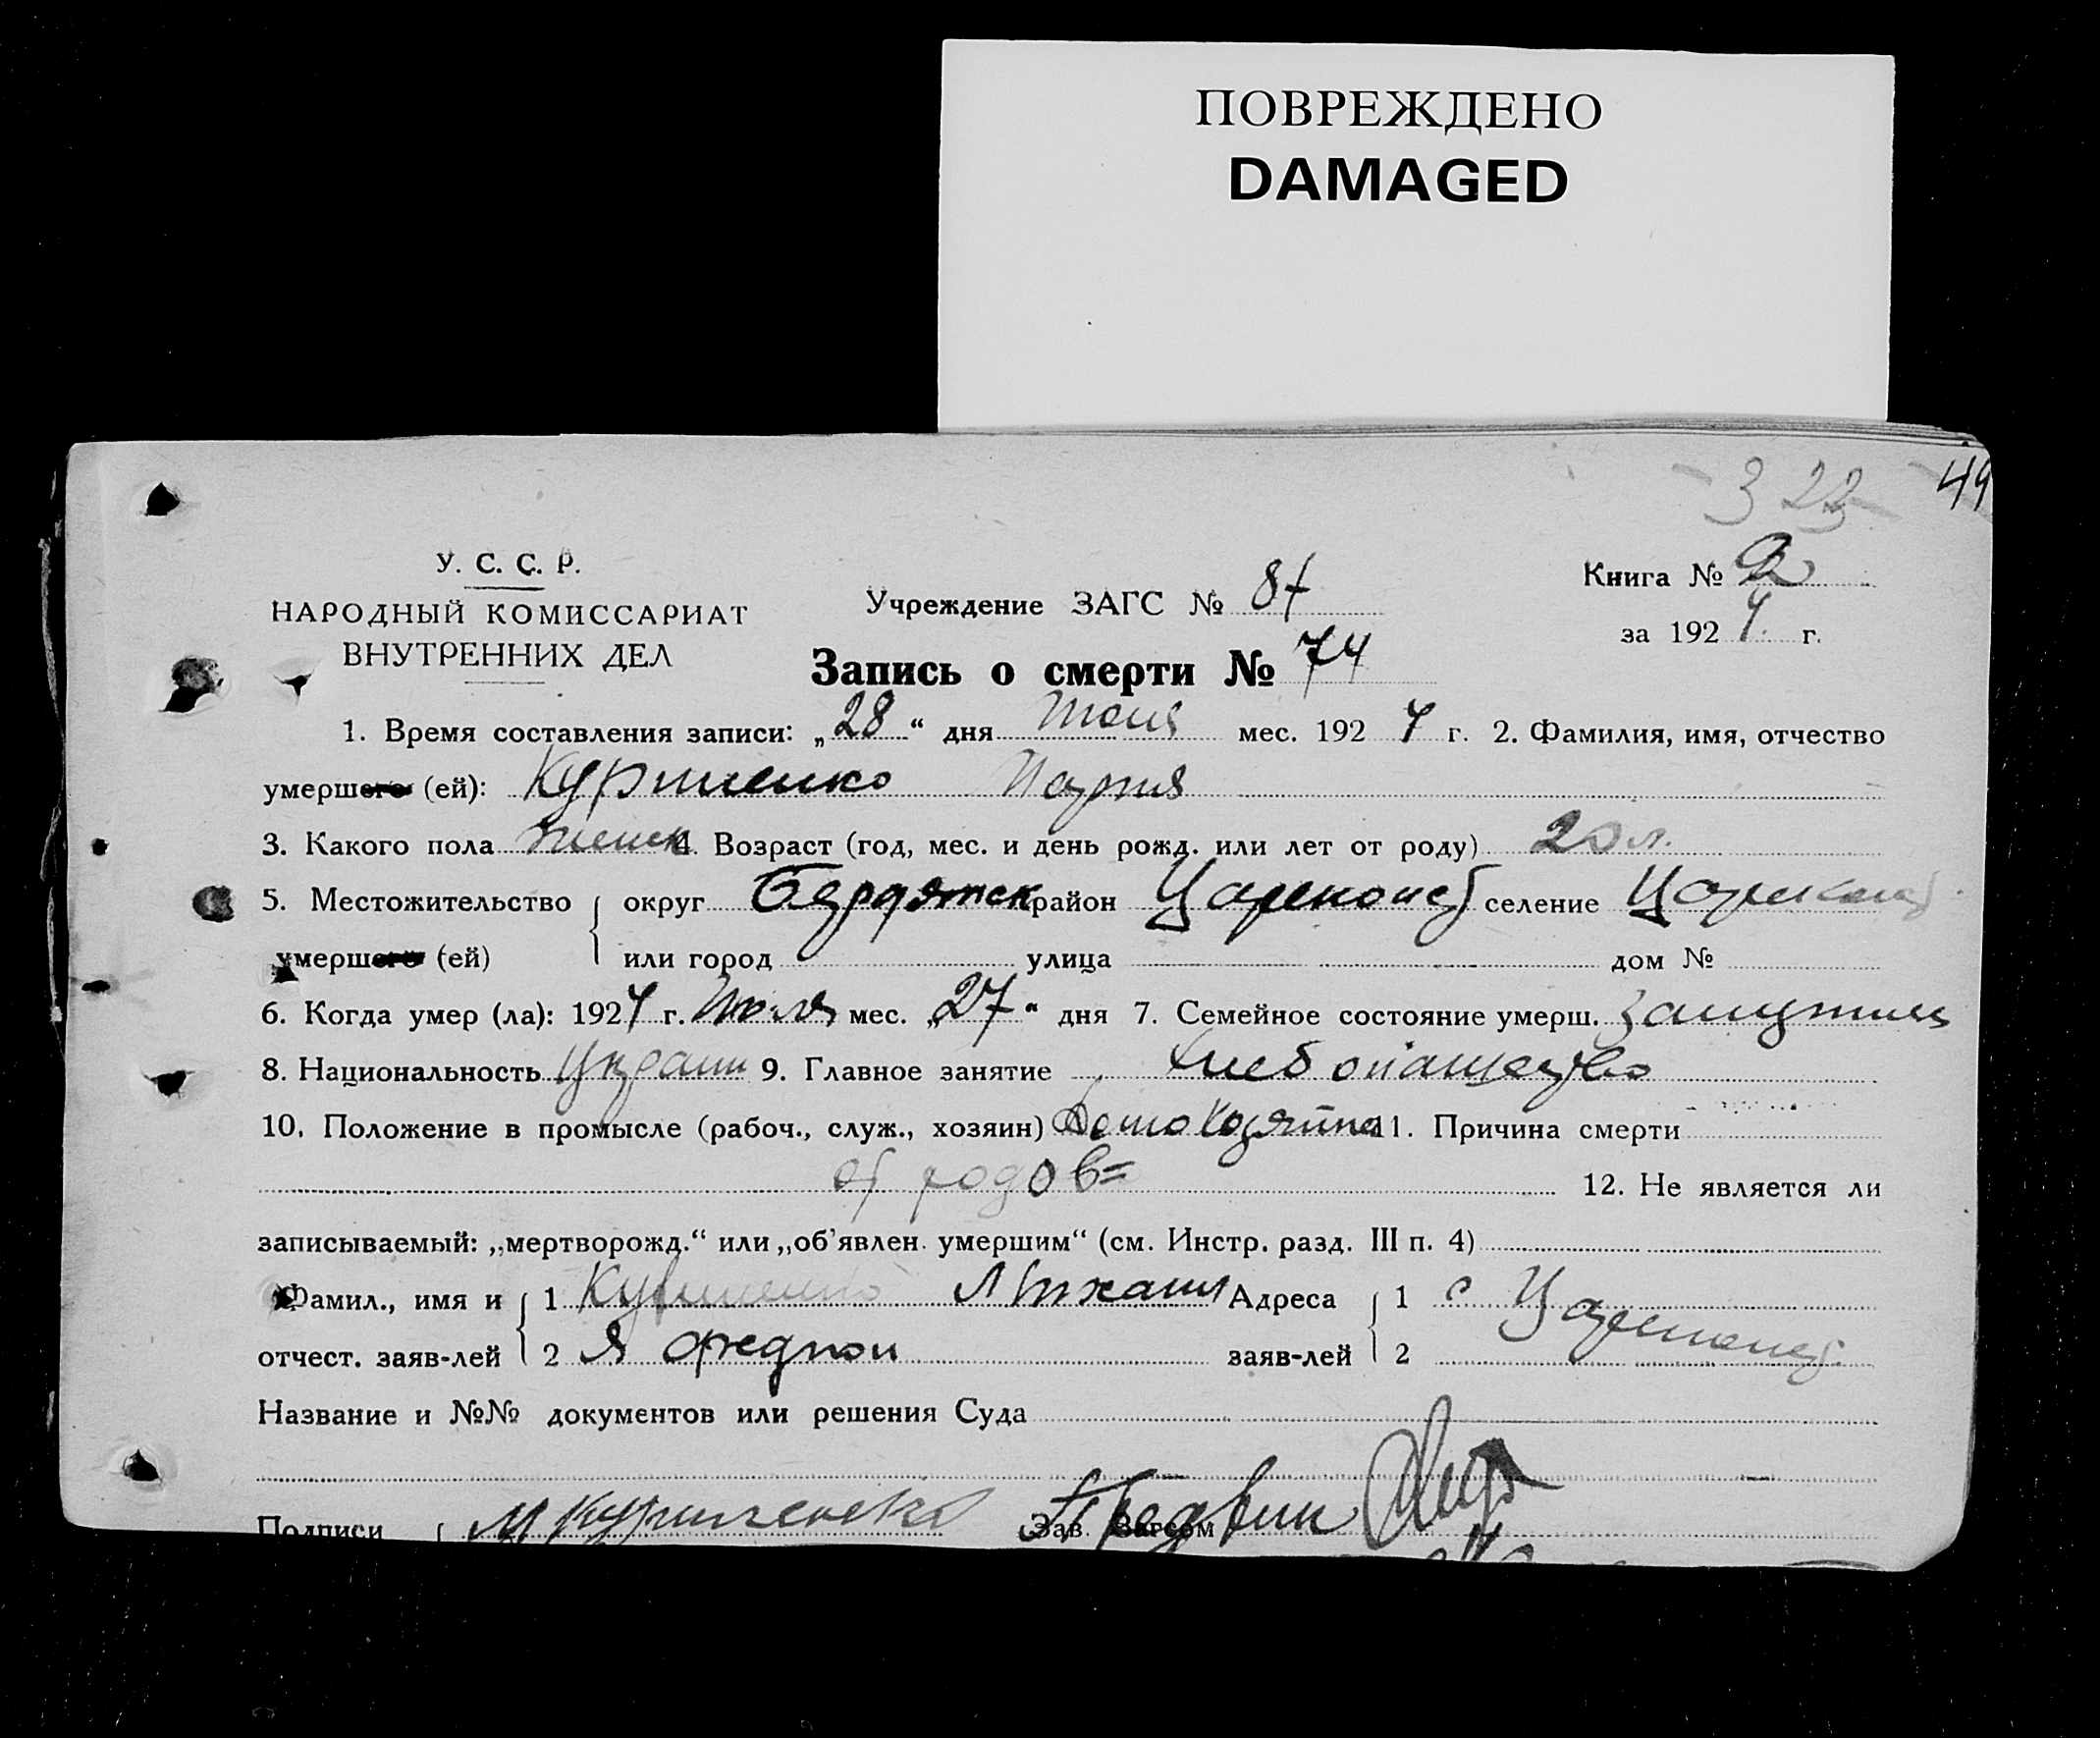 ПОВРЕЖДЕНО
DAMAGED
323
49
У. С. С. Р.
НАРОДНЫЙ КОМИССАРИАТ
ВНУТРЕННИХ ДЕЛ
Учреждение ЗАГС №
Книга № 2
за 1924 г.
Запись о смерти № 74
1. Время составления записи: „28“ дня мес. 1924 г. 2. Фамилия, имя, отчество
умершего (ей): Куриленко Мария
3. Какого пола женск 4. Возраст (год, мес. и день рожд. или лет от роду) 20 л.
5. Местожительство округ Бердянск район селение
умершего (ей) или город улица дом №
6. Когда умер (ла): 1924 г. Июля мес. „27“ дня 7. Семейное состояние умерш. замужняя
8. Национальность Украин 9. Главное занятие хлебопашество
10. Положение в промысле (рабоч., служ., хозяин) Домохозяйка 11. Причина смерти
от родов
12. Не является ли
записываемый: „мертворожд.“ или „об'явлен. умершим“ (см. Инстр. разд. III п. 4)
Фамил., имя и 1 Куриленко Михаил Адреса 1 с
отчест. заяв-лей 2 заяв-лей 2
Название и №№ документов или решения Суда
Подписи М Куриленко Зав. Загсом